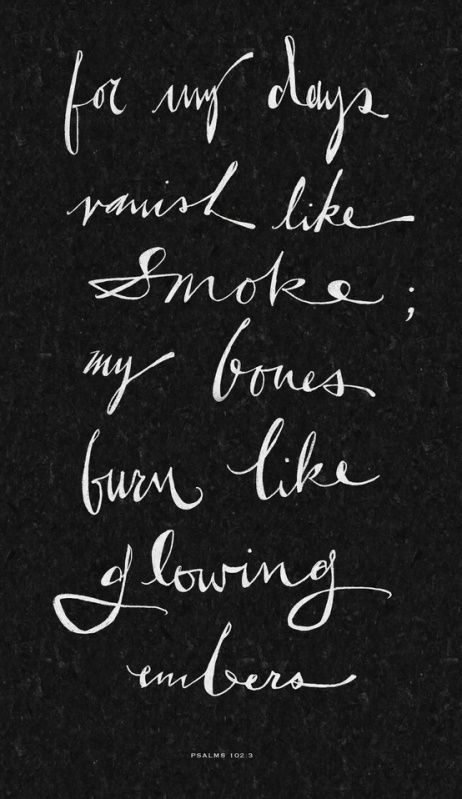 for my days
vanish like
Smoke;
my bones
burn like
glowing
embers
PSALMS 102:3